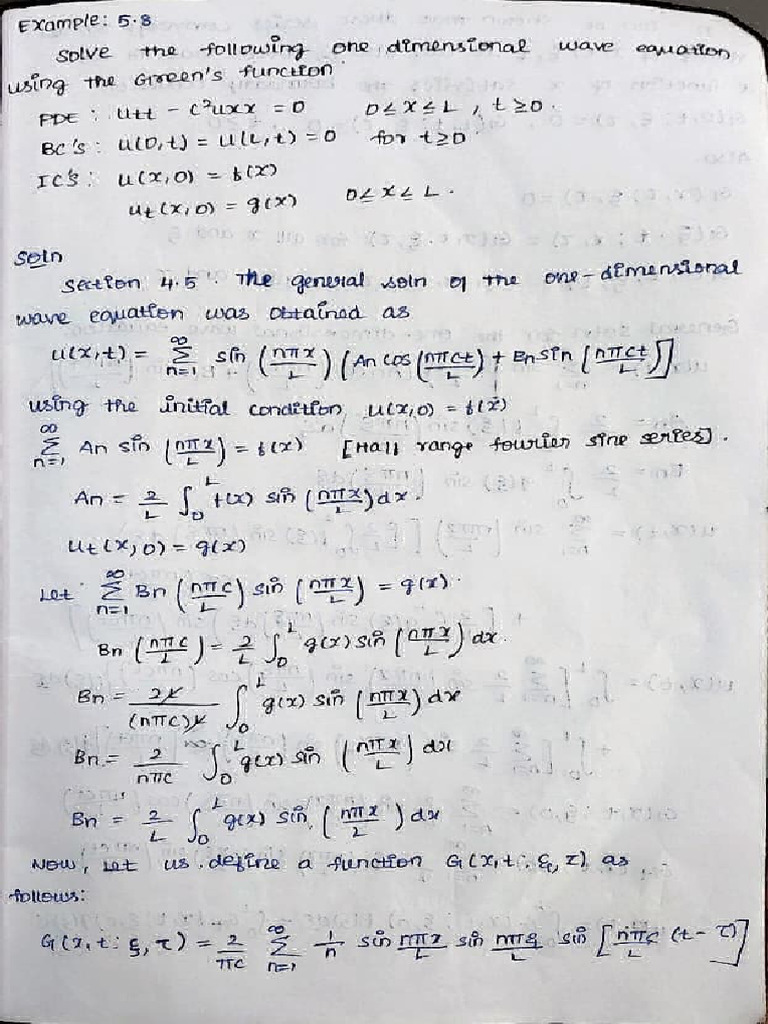 Example: 5.8
Solve the following one dimensional wave equation
using the Green's function
PDE : utt - c²uxx = 0 0≤x≤L, t≥0.
BC's : u(0,t) = u(L,t) = 0 for t≥0
IC's : u(x,0) = f(x)
ut(x,0) = g(x) 0≤x≤L.
Soln
Section 4.5. The general soln of the one-dimensional
wave equation was obtained as
u(x,t) = ∞ Σ n=1 sin (nπx/L) (An cos (nπct/L) + Bn sin [nπct/L]]
using the initial condition u(x,0) = f(x)
∞ Σ n=1 An sin (nπx/L) = f(x) [Half range fourier sine series].
An = 2/L ∫₀ᴸ f(x) sin (nπx/L) dx.
ut(x,0) = g(x)
Let ∞ Σ n=1 Bn (nπc/L) sin (nπx/L) = g(x).
Bn (nπc/L) = 2/L ∫₀ᴸ g(x) sin (nπx/L) dx.
Bn = 2L/(nπc)L ∫₀ᴸ g(x) sin (nπx/L) dx
Bn = 2/nπc ∫₀ᴸ g(x) sin (nπx/L) dx
Bn = 2/L ∫₀ᴸ g(x) sin (nπx/2) dx
Now, Let us define a function G(x,t : ξ, τ) as
follows:
G(x,t : ξ, τ) = 2/πc ∞ Σ n=1 1/n sin nπx/L sin nπξ/L sin [nπc/L (t-τ)]